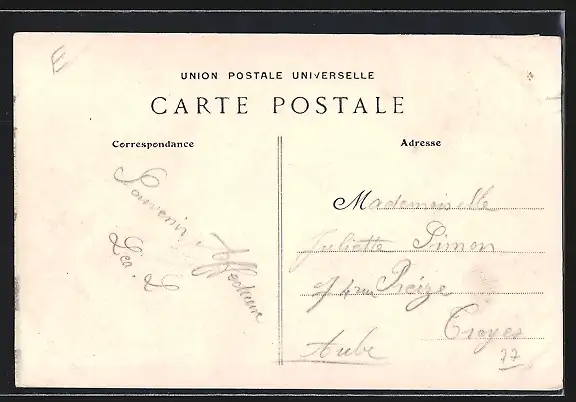 E
UNION POSTALE UNIVERSELLE
CARTE POSTALE
Correspondance
Adresse
Souvenir Affectueux
Léa. S
Mademoiselle
Juliette Simon
rue Preize
Troyes
Aube
77